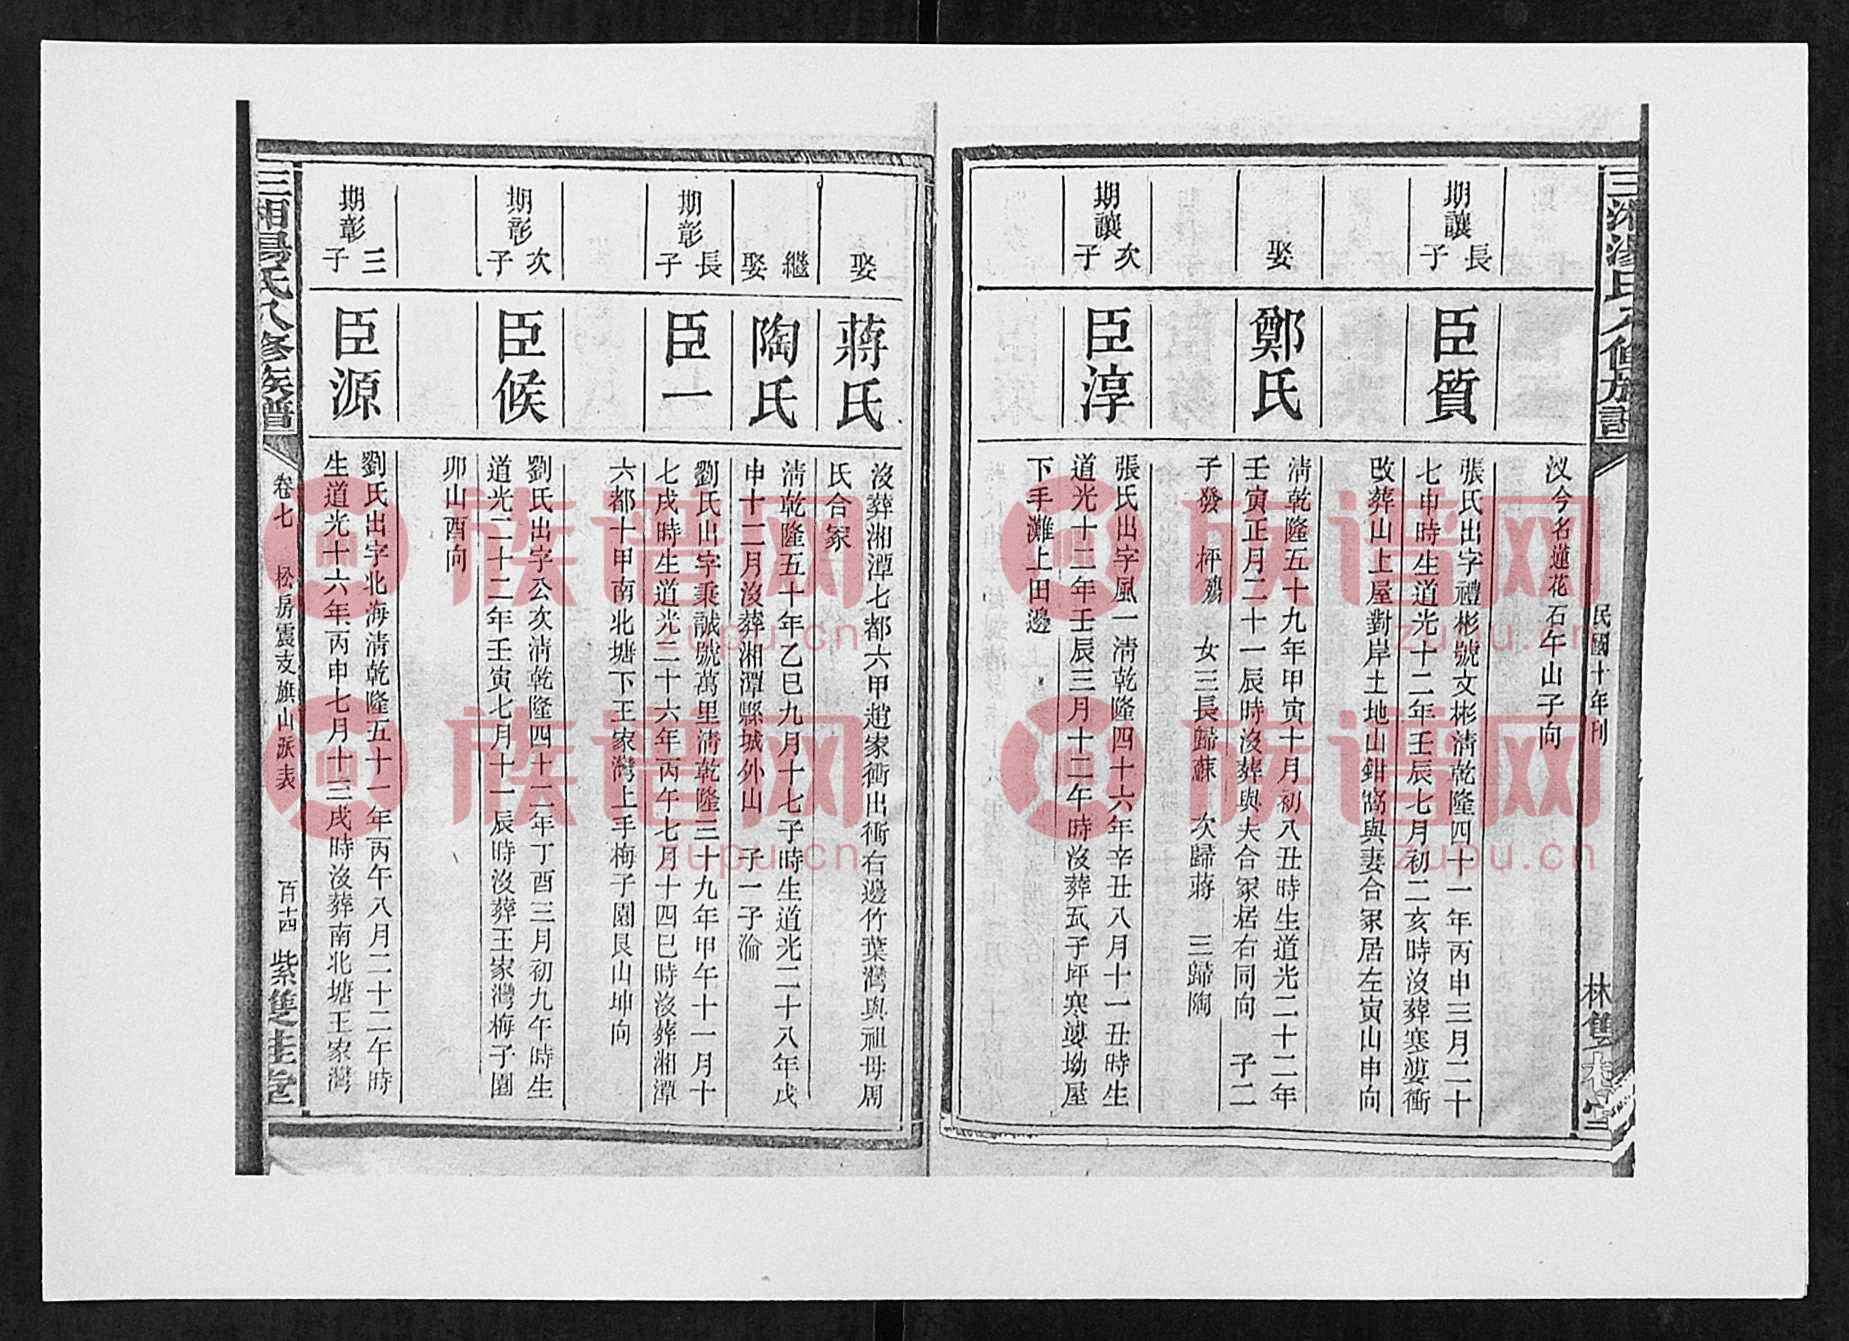 民國十年刊
汊今名蓮花石午山子向
期讓長子
臣質
張氏出字禮彬號文彬清乾隆四十一年丙申三月二十
七申時生道光十二年壬辰七月初二亥時沒葬寒婆衝
改葬山上屋對岸土地山鉗窩與妻合冢居左寅山申向
娶
鄭氏
清乾隆五十九年甲寅十月初八丑時生道光二十二年
壬寅正月二十一辰時沒葬與夫合冢居右同向 子二
子發 枰殤 女三長歸蘇 次歸蔣 三歸陶
期讓次子
臣淳
張氏出字風一清乾隆四十六年辛丑八月十一丑時生
道光十二年壬辰三月十二午時沒葬瓦子坪寒婆坳屋
下手灘上田邊
娶
蔣氏
沒葬湘潭七都六甲趙家衝出衝右邊竹葉灣與祖母周
氏合冢
繼娶
陶氏
清乾隆五十年乙巳九月十七子時生道光二十八年戊
申十二月沒葬湘潭縣城外山 子一子渝
期彰長子
臣一
劉氏出字秉誠號萬里清乾隆三十九年甲午十一月十
七戌時生道光二十六年丙午七月十四巳時沒葬湘潭
六都十甲南北塘下王家灣上手梅子園艮山坤向
期彰次子
臣候
劉氏出字公次清乾隆四十二年丁酉三月初九午時生
道光二十二年壬寅七月十一辰時沒葬王家灣梅子園
卯山酉向
期彰三子
臣源
劉氏出字北海清乾隆五十一年丙午八月二十二午時
生道光十六年丙申七月十三戌時沒葬南北塘王家灣
三湘湯氏八修族譜
卷七 松房震支旗山派表
百十四
紫雙桂堂
族譜网
zupu.cn
族譜网
zupu.cn
族譜网
zupu.cn
族譜网
zupu.cn